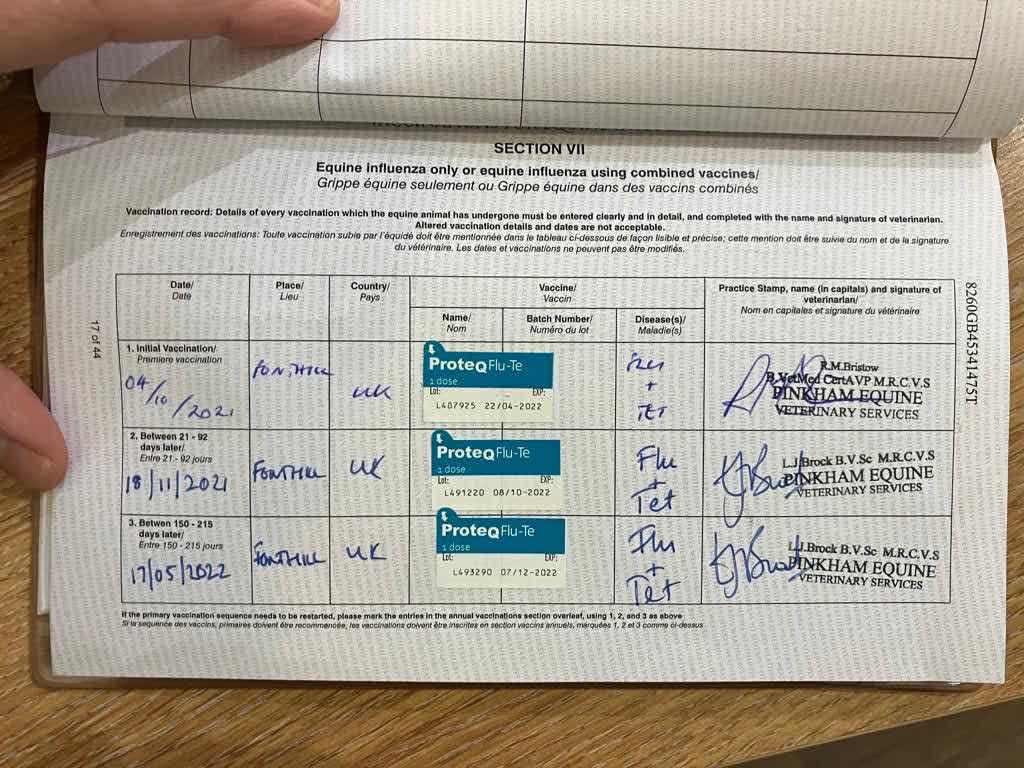 SECTION VII
Equine influenza only or equine influenza using combined vaccines/
Grippe équine seulement ou Grippe équine dans des vaccins combinés
Vaccination record: Details of every vaccination which the equine animal has undergone must be entered clearly and in detail, and completed with the name and signature of veterinarian.
Altered vaccination details and dates are not acceptable.
Enregistrement des vaccinations: Toute vaccination subie par l'équidé doit être mentionnée dans le tableau ci-dessous de façon lisible et précise; cette mention doit être suivie du nom et de la signature
du vétérinaire. Les dates et vaccinations ne peuvent pas être modifiés.
Date/
Date
Place/
Lieu
Country/
Pays
Vaccine/
Vaccin
Name/
Nom
Batch Number/
Numéro du lot
Disease(s)/
Maladie(s)
Practice Stamp, name (in capitals) and signature of
veterinarian/
Nom en capitales et signature du vétérinaire
1. Initial Vaccination/
Premiere vaccination
04/10/2021
FONTHILL
UK
ProteqFlu-Te
1 dose
Lot: EXP:
L487925 22/04-2022
FLU
+
TET
R.M.Bristow
B.VetMed CertAVP M.R.C.V.S
PINKHAM EQUINE
VETERINARY SERVICES
2. Between 21 - 92
days later/
Entre 21 - 92 jours
18/11/2021
FONTHILL
UK
ProteqFlu-Te
1 dose
Lot: EXP:
L491220 08/10-2022
Flu
+
Tet
L.J.Brock B.V.Sc M.R.C.V.S
PINKHAM EQUINE
VETERINARY SERVICES
3. Betwen 150 - 215
days later/
Entre 150 - 215 jours
17/05/2022
FONTHILL
UK
ProteqFlu-Te
1 dose
Lot: EXP:
L493290 07/12-2022
Flu
+
Tet
L.J.Brock B.V.Sc M.R.C.V.S
PINKHAM EQUINE
VETERINARY SERVICES
If the primary vaccination sequence needs to be restarted, please mark the entries in the annual vaccinations section overleaf, using 1, 2, and 3 as above
Si la sequence des vaccins, primaires doivent être recommencée, les vaccinations doivent être inscrites en section vaccins annuels, marquées 1, 2 et 3 comme ci-dessus
17 of 44
8260GB45341475T